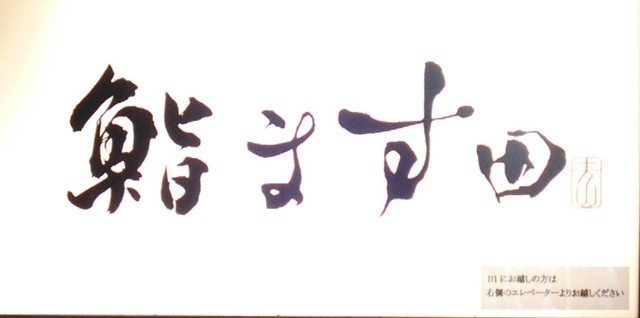 鮨ます田
青山
B1にお越しの方は
右側のエレベーターよりお越しください